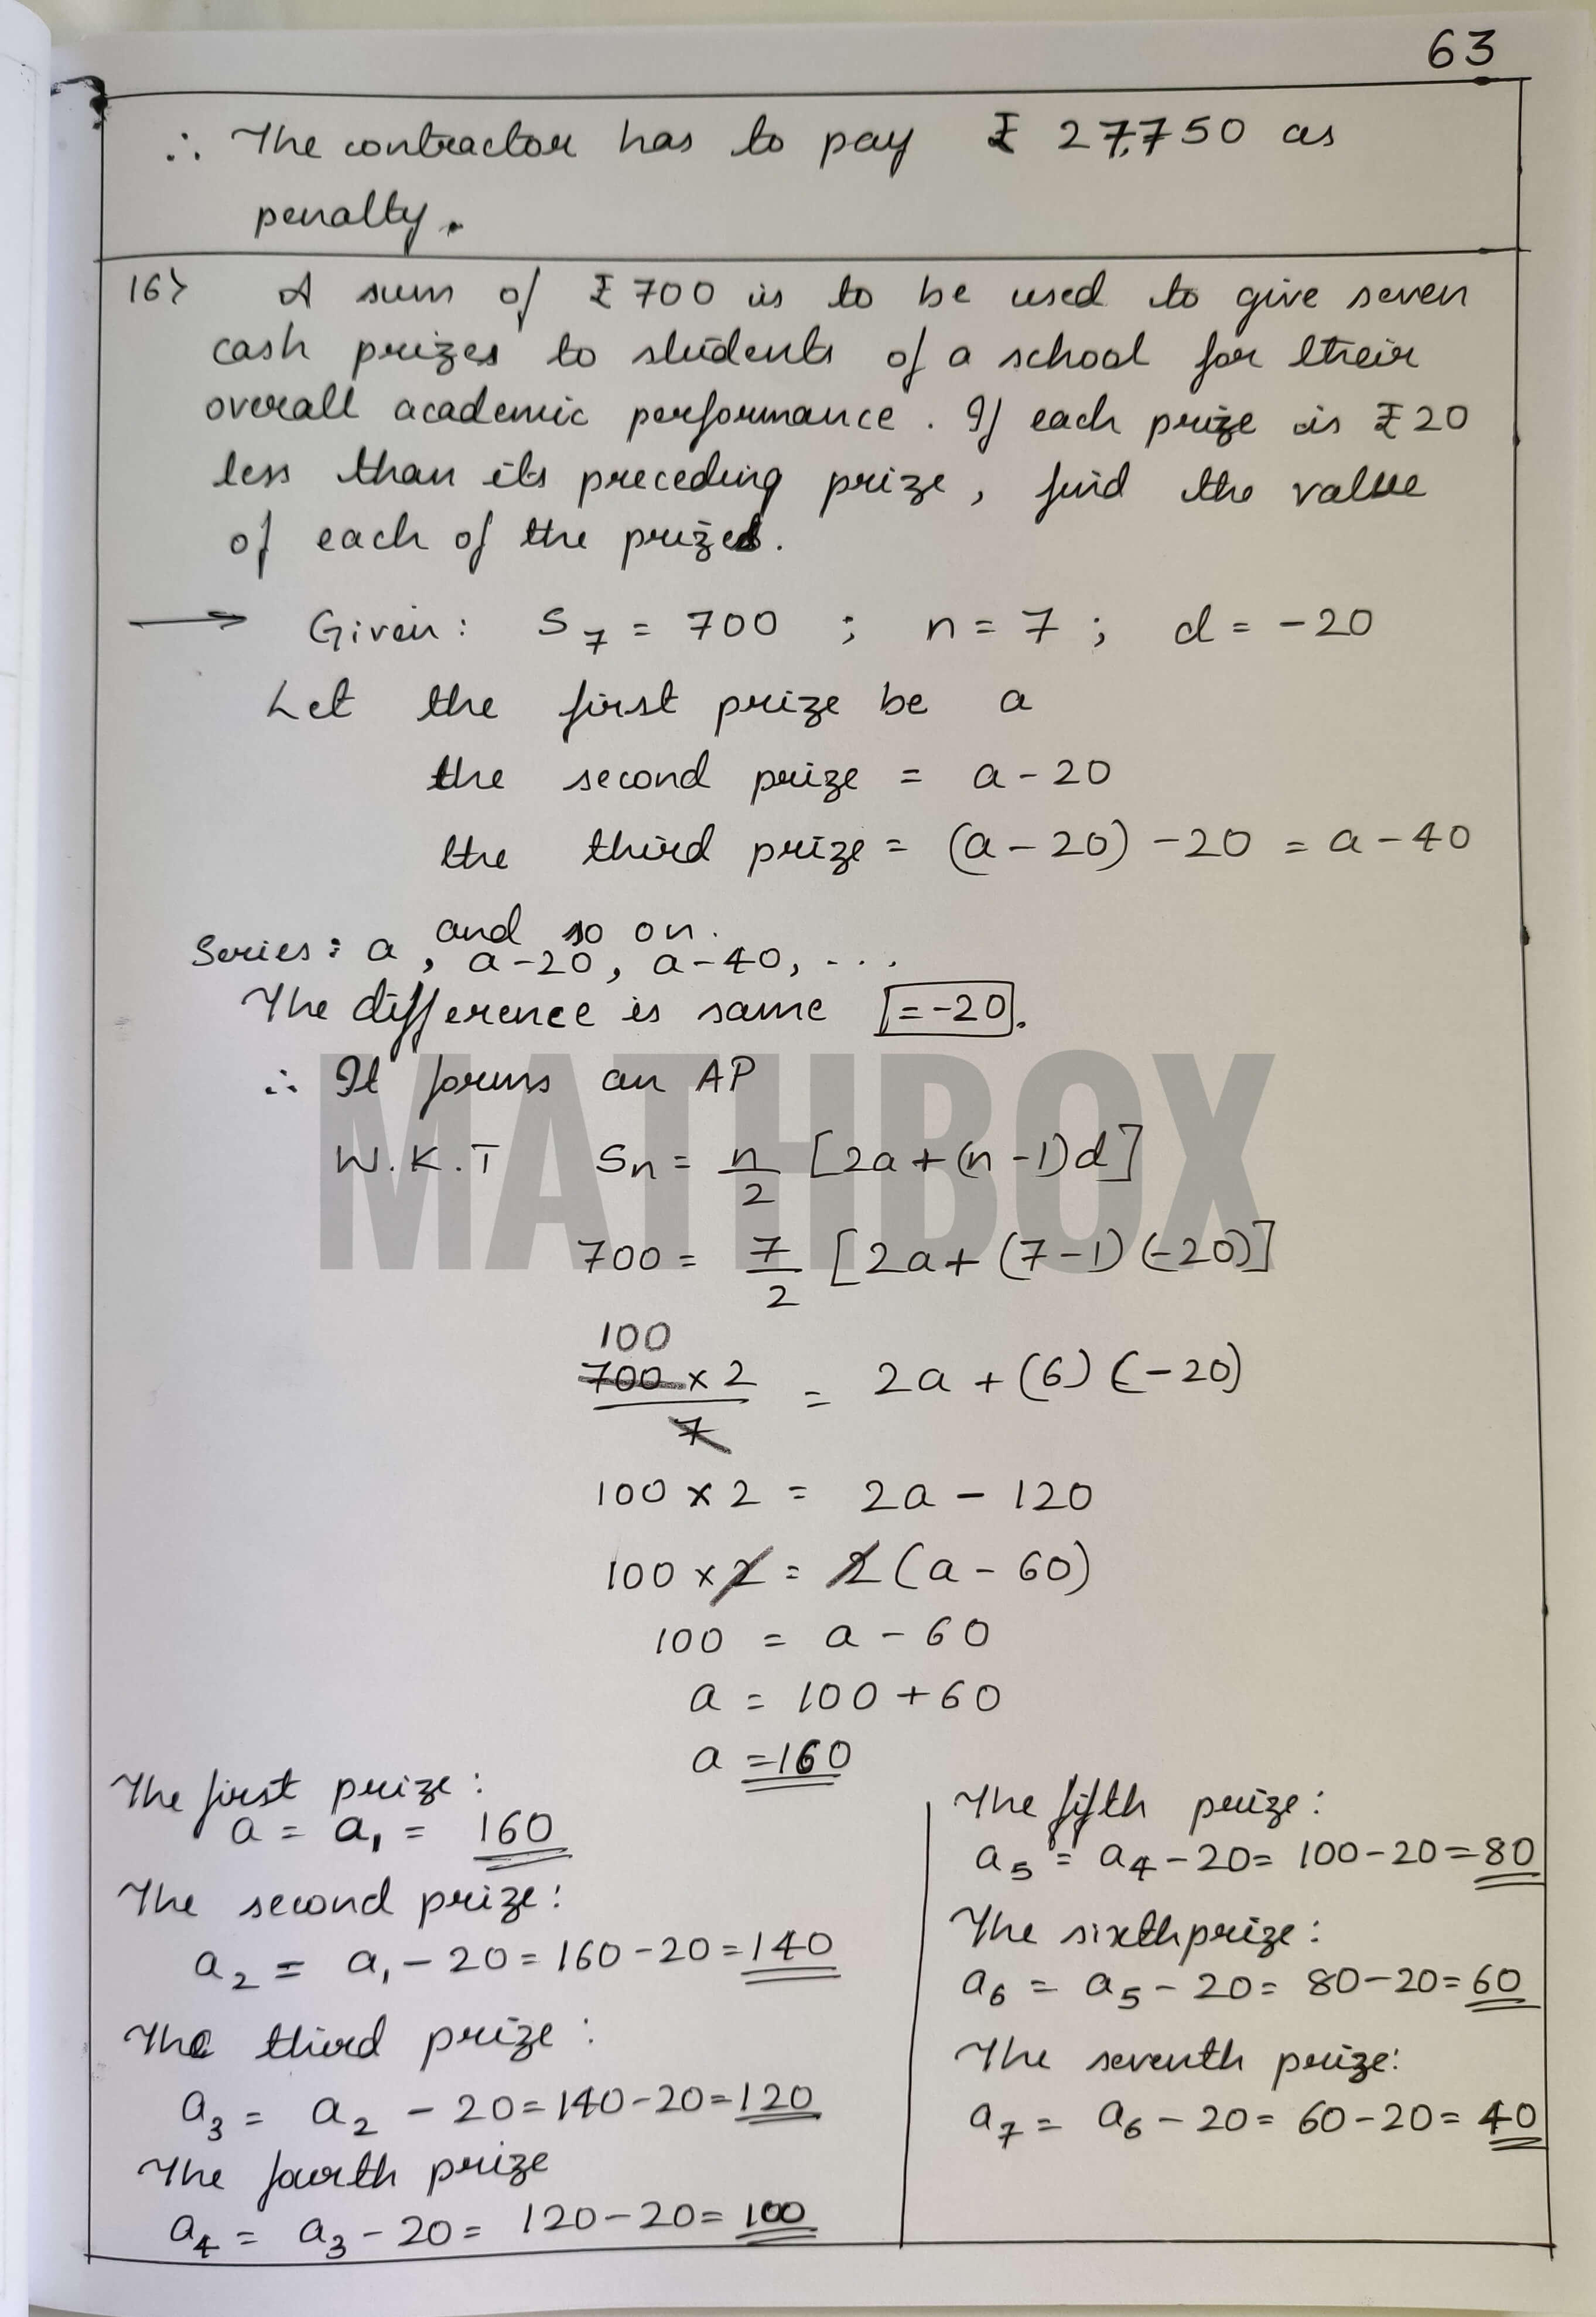 63
∴ The contractor has to pay ₹ 27,750 as
penalty.
16> A sum of ₹700 is to be used to give seven
cash prizes to students of a school for their
overall academic performance. If each prize is ₹20
less than its preceding prize, find the value
of each of the prizes.
→ Given: S₇ = 700 ; n = 7 ; d = -20
Let the first prize be a
the second prize = a - 20
the third prize = (a - 20) - 20 = a - 40
and so on.
Series: a, a-20, a-40, ...
The difference is same = -20.
∴ It forms an AP
MATHBOX
W.K.T Sn = n/2 [2a + (n - 1)d]
700 = 7/2 [2a + (7-1)(-20)]
100
700 x 2 / 7 = 2a + (6)(-20)
100 x 2 = 2a - 120
100 x 2 = 2(a - 60)
100 = a - 60
a = 100 + 60
a = 160
The first prize:
a = a₁ = 160
The second prize:
a₂ = a₁ - 20 = 160 - 20 = 140
The third prize:
a₃ = a₂ - 20 = 140 - 20 = 120
The fourth prize
a₄ = a₃ - 20 = 120 - 20 = 100
The fifth prize:
a₅ = a₄ - 20 = 100 - 20 = 80
The sixth prize:
a₆ = a₅ - 20 = 80 - 20 = 60
The seventh prize:
a₇ = a₆ - 20 = 60 - 20 = 40